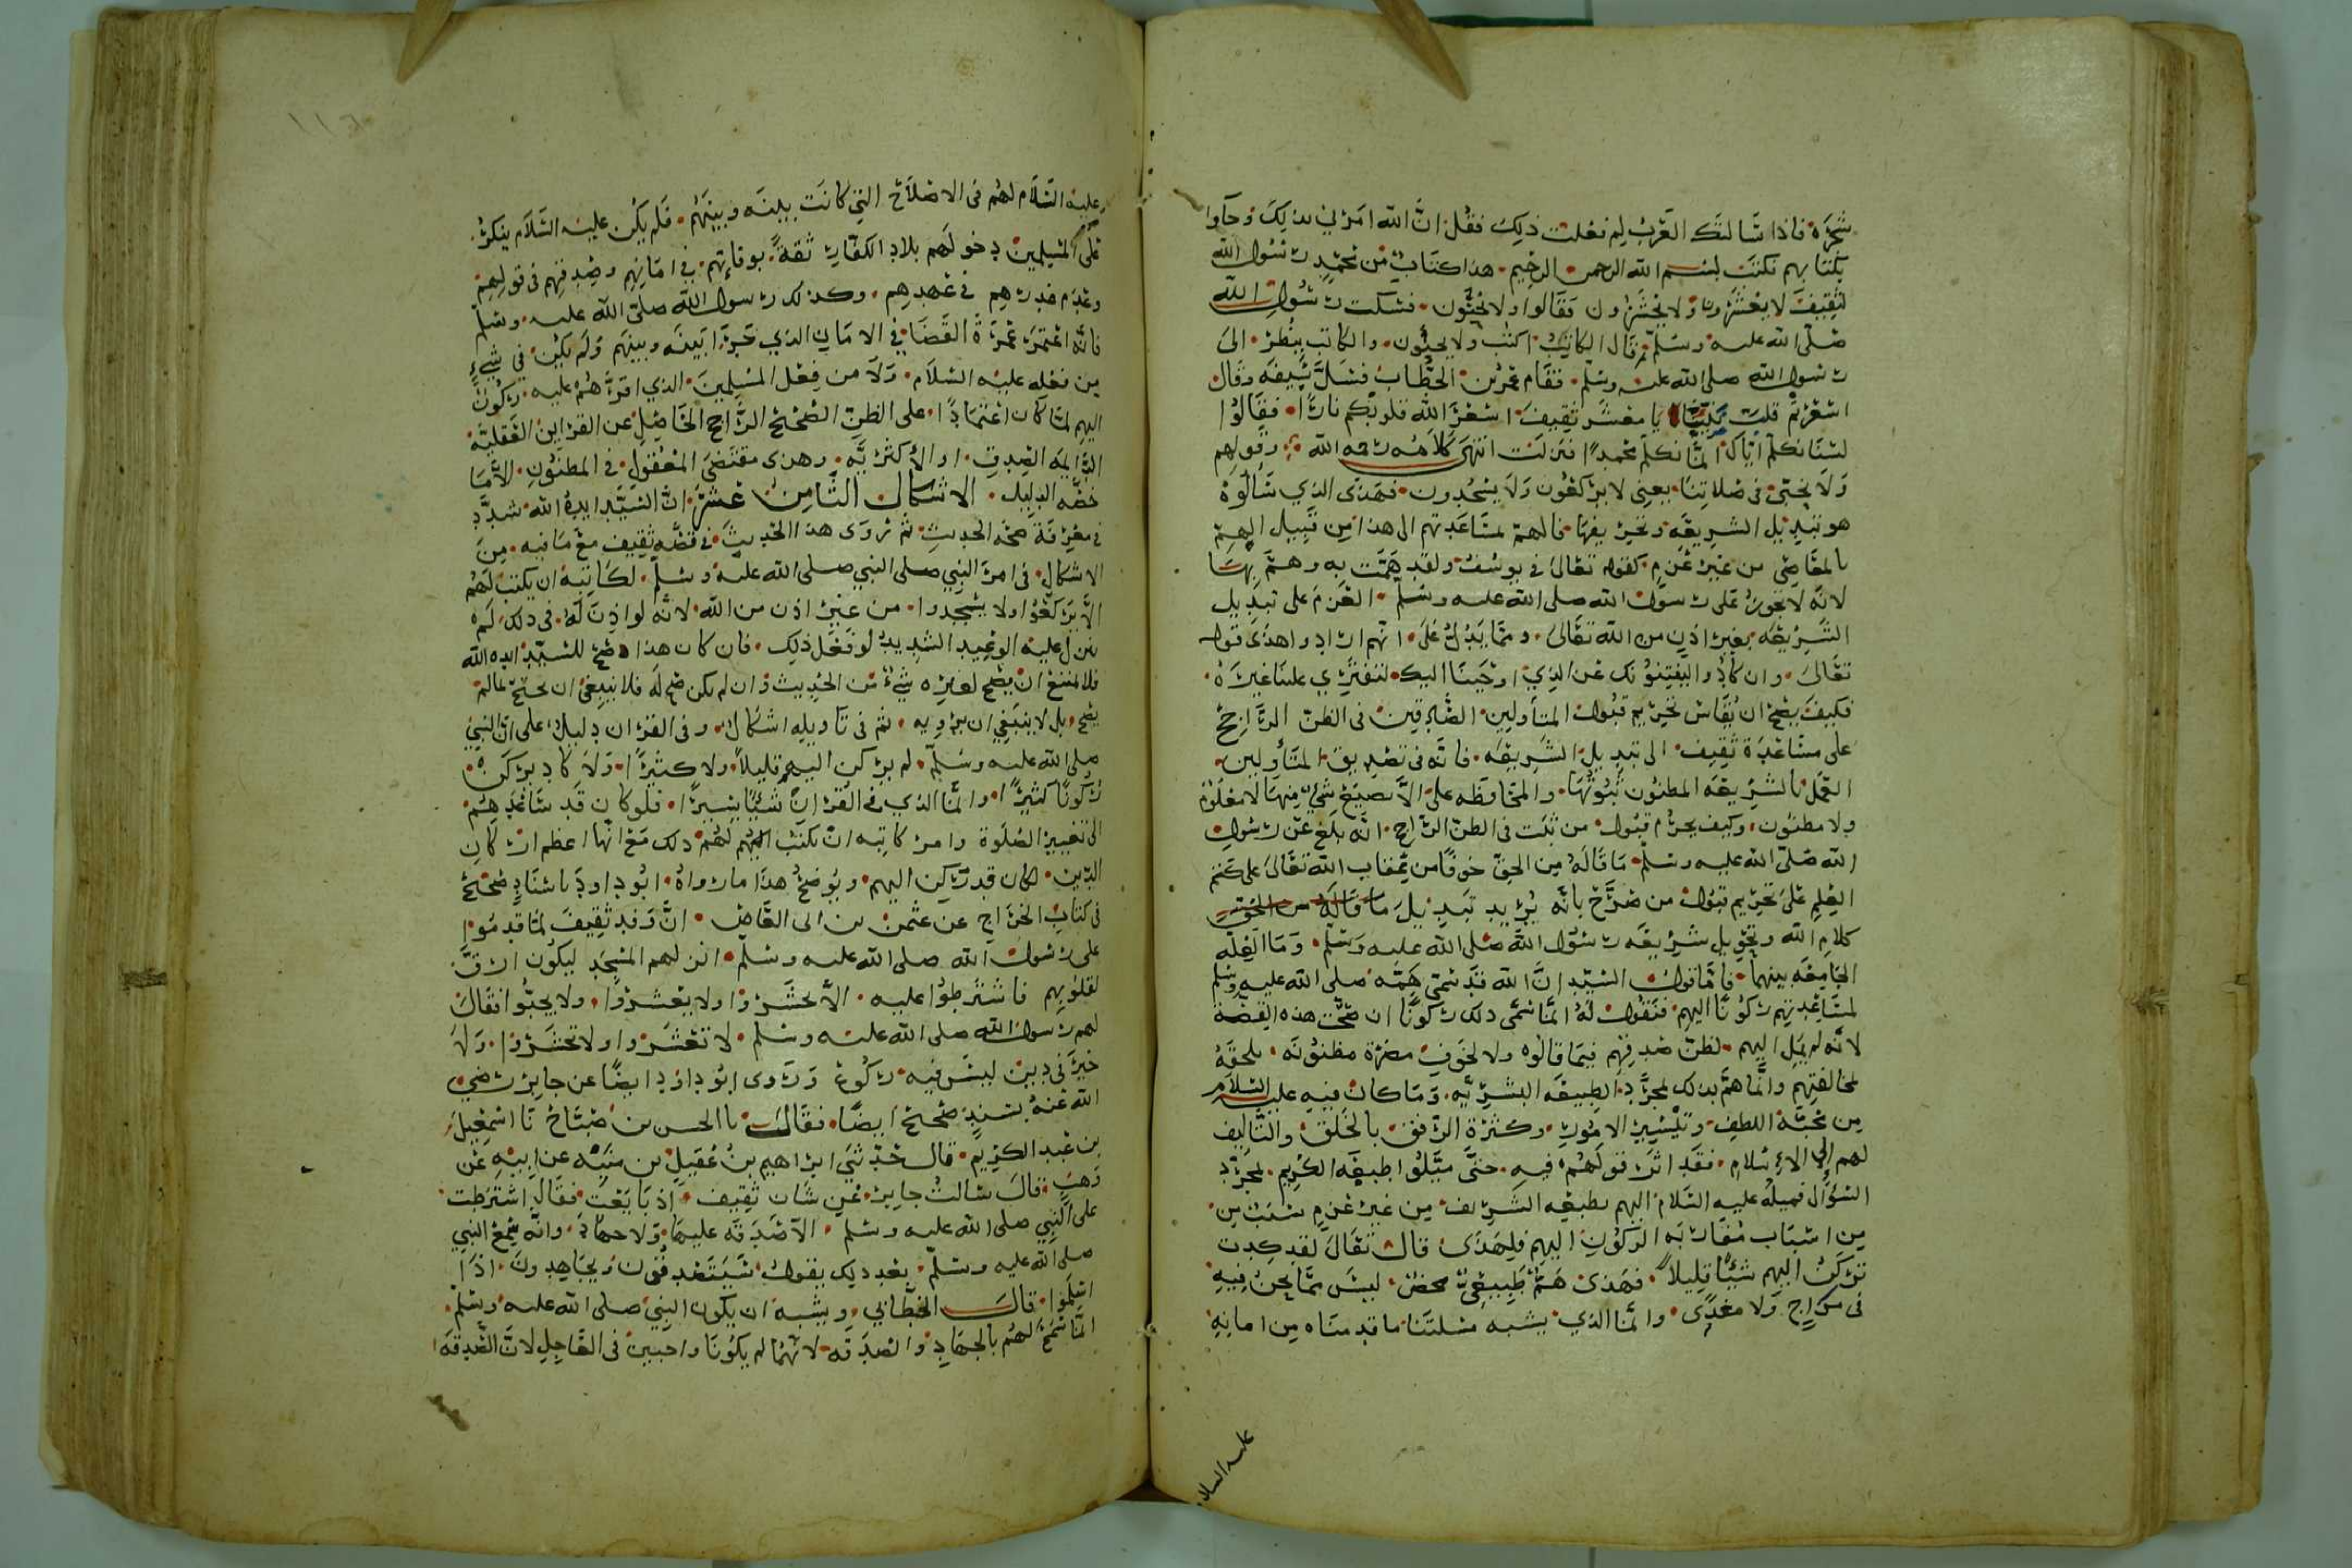 شجره فاذا سالتك العرب لم فعلت ذلك فقل ان الله امرني بذلك وجآوا
بكتابهم فكتب بسم الله الرحمن الرحيم هذا كتاب من محمد رسول الله
لثقيف لا يعشرون ولا يحشرون فقالوا ولا يجبون فسكت رسول الله
صلى الله عليه وسلم ثم قال الكاتب اكتب ولا يجبون والكاتب ينظر الى
رسول الله صلى الله عليه وسلم فقام عمر بن الخطاب فسل سيفه وقال
اسعرتم قلب نبينا يا معشر ثقيف اسعر الله قلوبكم نارا فقالوا
لسنا نكلم اياك انما نكلم محمدا فنزلت انتهى كلامه رحمه الله وقولهم
ولا نجبي في صلاتنا يعني لا يركعون ولا يسجدون فهذى الذي سالوه
هو تبديل الشريعه وتحريفها فما لهم لمساعدتهم الى هذا من قبيل الهم
بالمعاصي من غير عزم كقوله تعالى في يوسف ولقد همت به وهم بها
لانه لا يجوز على رسول الله صلى الله عليه وسلم العزم على تبديل
الشريعه بغير اذن من الله تعالى ومما يدل على انهم ارادوا هذى قوله
تعالى وان كادوا ليفتنونك عن الذي اوحينا اليك لتفتري علينا غيره
فكيف يصح ان يقاس تحريم قبول المتأولين الصادقين في الظن الراجح
على مساعدة ثقيف الى تبديل الشريعه فانه في تصديق المتأولين
العمل بالشريعه المظنون ثبوتها والمحافظه على الا يضيع شي منها لا معلوم
ولا مظنون وكيف يحرم قبول من ثبت في الظن الراجح انه بلغ عن رسول
الله صلى الله عليه وسلم ما قاله من الحق خوفا من عقاب الله تعالى على كتم
العلم على تحريم قبول من صرح بانه يريد تبديل ما قاله من الحق
كلام الله وتحويل شريعه رسول الله صلى الله عليه وسلم وما العله
الجامعه بينهما فاما قول السيد ان الله قد سمى همه صلى الله عليه وسلم
لمساعدتهم ركونا اليهم فنقول له انما سمى ذلك ركونا ان صحت هذه القصه
لانه لم يمل اليهم لظن صدقهم فيما قالوه ولا لخوف مضرة مظنونه يلحقه
لمخالفتهم وانما هم بذلك لمجرد الطبيعه البشريه وما كان فيه عليه السلام
من محبة اللطف وتيسير الامور وكثرة الرفق بالخلق والتاليف
لهم الى الاسلام فقد اثر قولهم فيه حتى ميلوا طبعه الكريم لمجرد
السؤال فميله عليه السلام اليهم بطبعه الشريف من غير عزم سبب من
من اسباب مقاربه الركون اليهم فلهذى قال تعالى لقد كدت
تركن اليهم شيئا قليلا فهذى هم طبيعي محض ليس مما نحن فيه
في مراح ولا مغدى وانما الذي يشبه مسلتنا ما قدمناه من امانه
عليه السلام
عليه السلام لهم في الاصلاح التي كانت بينه وبينهم فلم يكن عليه السلام ينكر
على المسلمين دخولهم بلاد الكفار ثقة بوفائهم في امانهم وصدقهم في قولهم
وعدم غدرهم في عهدهم وكذلك رسول الله صلى الله عليه وسلم
فانه اعتمر عمرة القضا في الامان الذي جرى بينه وبينهم ولم يكن في شي
من فعله عليه السلام ولا من فعل المسلمين الذي اقرهم عليه ركون
اليهم لما كان اعتمادا على الظن الصحيح الراجح الحاصل عن القراين العقليه
الدايمه الصدق او الاكثريه وهذى مقتضى المعقول في المظنون الا ما
خصه الدليل الاشكال الثامن عشر ان السيد ايده الله شدد
في معرفة صحه الحديث ثم روى هذا الحديث في قصه ثقيف مع ما فيه من
الاشكال في امر النبي صلى النبي صلى الله عليه وسلم لكاتبه ان يكتب لهم
الا يركعوا ولا يسجدوا من غير اذن من الله لانه لو اذن له في ذلك لم
ينزل عليه الوعيد الشديد لو فعل ذلك فان كان هذا صح للسيد ايده الله
فلا يمتنع ان يصح لغيره شيء من الحديث وان لم يكن صح له فلا ينبغي ان يحتج بما لم
يصح بل لا ينبغي ان يرويه ثم في تاويله اشكال وفي القران دليل على ان النبي
صلى الله عليه وسلم لم يركن اليهم قليلا ولا كثيرا ولا كاد يركن
ركونا كثيرا وانما الذي في القران شيئا يسيرا فلو كان قد ساعدهم
الى تغيير الصلوة وامر كاتبه ان يكتب لهم ذلك مع انها اعظم اركان
الدين لكان قد ركن اليهم ويوضح هذا ما رواه ابو داود باسناد صحيح
في كتاب الخراج عن عثمن بن ابى العاص ان وفد ثقيف لما قدموا
على رسول الله صلى الله عليه وسلم انزلهم المسجد ليكون ارق
لقلوبهم فاشترطوا عليه الا يحشروا ولا يعشروا ولا يجبوا فقال
لهم رسول الله صلى الله عليه وسلم لا تعشروا ولا تحشروا ولا
خير في دين ليس فيه ركوع وروى ابو داود ايضا عن جابر رضي
الله عنه بسند صحيح ايضا فقال نا الحسن بن صباح نا اسمعيل
بن عبد الكريم قال حدثني ابراهيم بن عقيل بن منبه عن ابيه عن
وهب قال سالت جابر عن شان ثقيف اذ بايعت فقال اشترطت
على النبي صلى الله عليه وسلم الا صدقه عليها ولا جهاد وانه سمع النبي
صلى الله عليه وسلم بعد ذلك يقول سيتصدقون ويجاهدون اذا
اسلموا قال الخطابي ويشبه ان يكون النبي صلى الله عليه وسلم
انما سمح لهم بالجهاد والصدقه لانهما لم يكونا واجبين في العاجل لان الصدقه